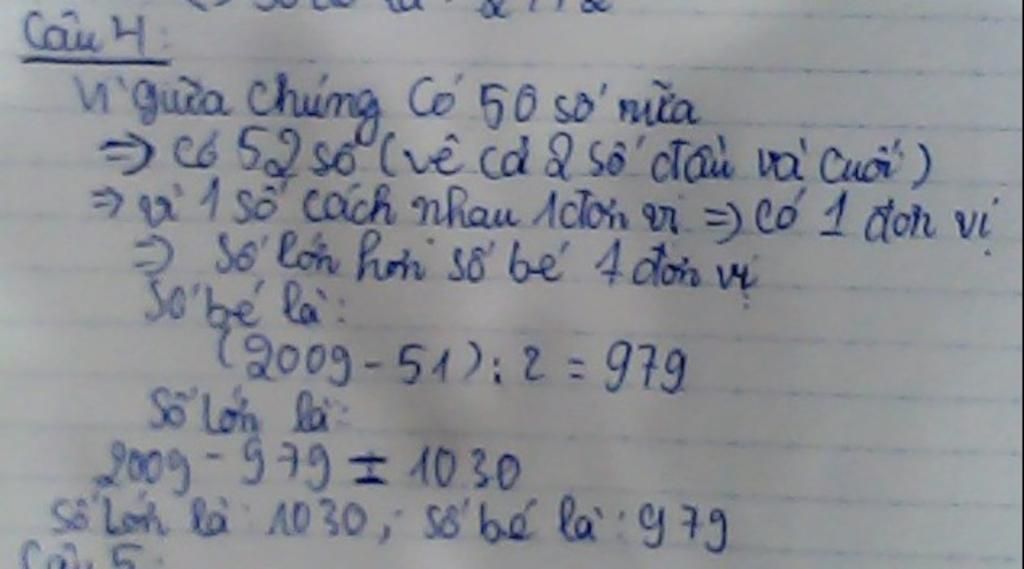 Câu 4:
Vì giữa chúng có 50 số nữa
=> có 52 số (vê cả 2 số đầu và cuối)
=> vì 1 số cách nhau 1 đơn vị => có 1 đơn vị
=> số lớn hơn số bé 1 đơn vị
Số bé là:
(2009 - 51) : 2 = 979
Số lớn là:
2009 - 979 = 1030
Số lớn là: 1030; số bé là: 979
Câu 5: